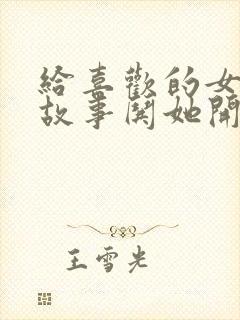 給喜歡的女
故事鬨她開
王雪光